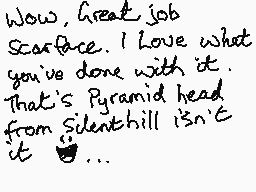 Wow, Great job
Scarface. I Love what
you've done with it.
That's Pyramid head
from Silent hill isn't
it ...